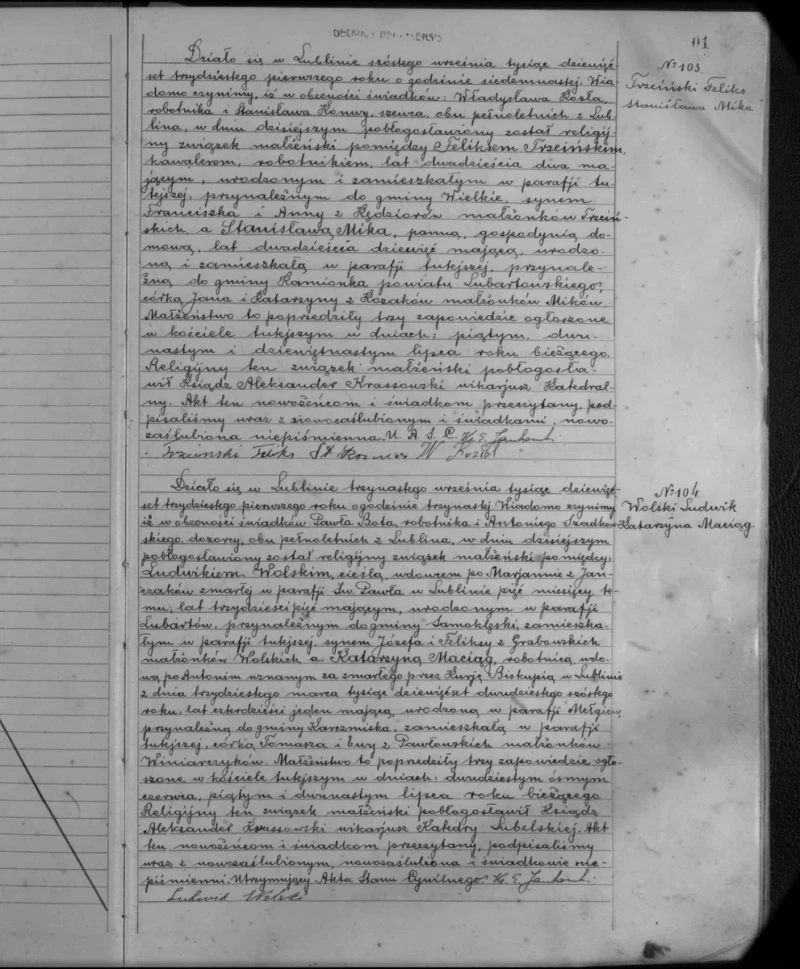 01
Nº 103
Trzciński Feliks
Stanisława Mika
Działo się w Lublinie szóstego września tysiąc dziewięć-
set trzydziestego pierwszego roku o godzinie siedemnastej. Wia-
domo czynimy, iż w obecności świadków: Władysława Kozła,
robotnika i Stanisława szewca, obu pełnoletnich z Lub-
lina, w dniu dzisiejszym pobłogosławiony został religij-
ny związek małżeński pomiędzy Feliksem Trzcińskim,
kawalerem, robotnikiem, lat dwadzieścia dwa ma-
jącym, urodzonym i zamieszkałym w parafji tu-
tejszej, przynależnym do gminy Wielkie, synem
Franciszka i Anny z Kędziorów małżonków Trzciń-
skich, a Stanisławą Mika, panną, gospodynią do-
mową, lat dwadzieścia dziewięć mającą, urodzo-
ną i zamieszkałą w parafji tutejszej, przynale-
żną do gminy Kamionka powiatu Lubartowskiego,
córką Jana i Katarzyny z Kozaków małżonków Mików.
Małżeństwo to poprzedziły trzy zapowiedzie ogłoszone
w kościele tutejszym w dniach: piątym, dwu-
nastym i dziewiętnastym lipca roku bieżącego.
Religijny ten związek małżeński pobłogosła-
wił Ksiądz Aleksander Krassowski wikarjusz Katedral-
ny. Akt ten nowożeńcom i świadkom przeczytany, pod-
pisaliśmy wraz z nowozaślubionym i świadkami, nowo-
zaślubiona niepiśmienna. U. A. S. C. Ks. E. Jankowski
Trzcinski Feliks St W Kozłoł
Nº 104
Wolski Ludwik
Katarzyna Maciąg.
Działo się w Lublinie trzynastego września tysiąc dziewięć-
set trzydziestego pierwszego roku o godzinie trzynastej. Wiadomo czynimy,
iż w obecności świadków Pawła Bota, robotnika i Antoniego
skiego, dozorcy, obu pełnoletnich z Lublina, w dniu dzisiejszym
pobłogosławiony został religijny związek małżeński pomiędzy:
Ludwikiem Wolskim, cieślą, wdowcem po Marjannie z Jań-
czaków zmarłej w parafji Św. Pawła w Lublinie pięć miesięcy te-
mu, lat trzydzieści pięć mającym, urodzonym w parafji
Lubartów, przynależnym do gminy Samoklęski, zamieszka-
łym w parafji tutejszej, synem Józefa i Feliksy z Grabowskich
małżonków Wolskich, a Katarzyną Maciąg, robotnicą, wdo-
wą po Antonim uznanym za zmarłego przez Kurję Biskupią w Lublinie
z dnia trzydziestego marca tysiąc dziewięćset dwudziestego szóstego
roku, lat czterdzieści jeden mającą, urodzoną w parafji Mełgiew,
przynależną do gminy Karczmiska, zamieszkałą w parafji
tutejszej, córką Tomasza i Ewy z Pawłowskich małżonków
Winiarczyków. Małżeństwo to poprzedziły trzy zapowiedzie ogło-
szone w kościele tutejszym w dniach: dwudziestym ósmym
czerwca, piątym i dwunastym lipca roku bieżącego
Religijny ten związek małżeński pobłogosławił Ksiądz
Aleksander Krassowski wikarjusz Katedry Lubelskiej. Akt
ten nowożeńcom i świadkom przeczytany, podpisaliśmy
wraz z nowozaślubionym, nowozaślubiona i świadkowie nie-
piśmienni. Utrzymujący Akta Stanu Cywilnego: Ks. E. Jankowski
Ludwik Wolski